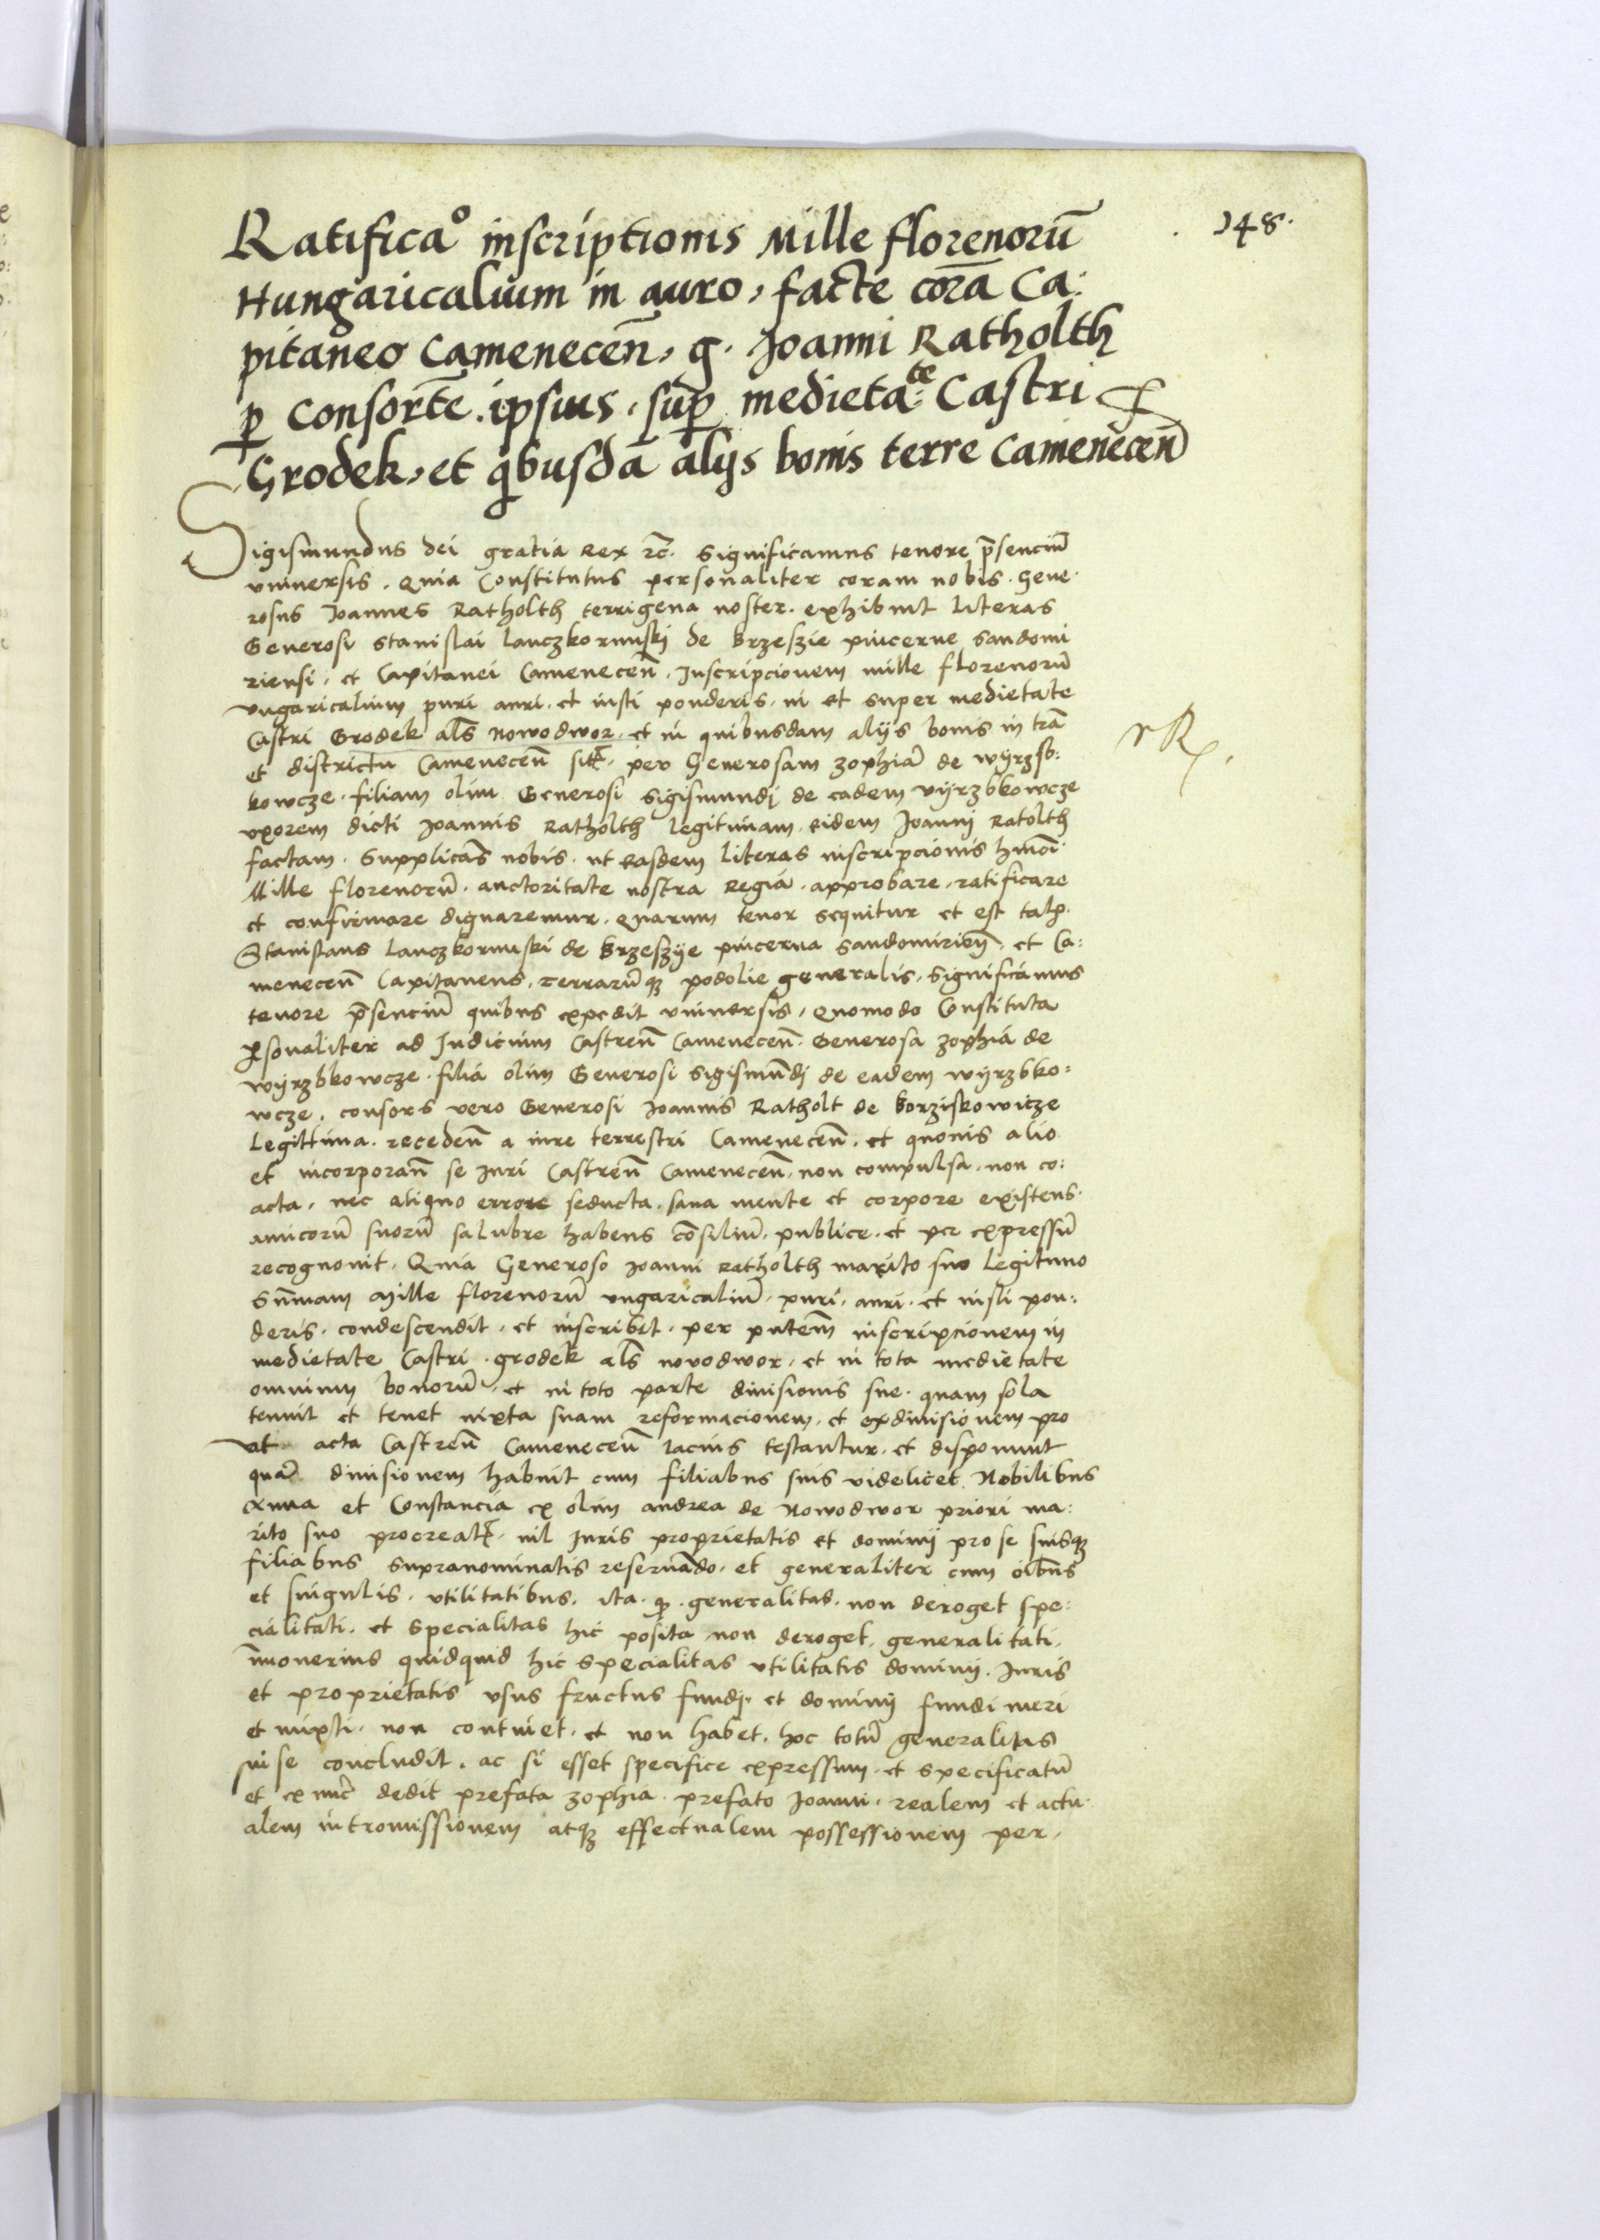 148.
Ratificao inscriptionis Mille florenorū
Hungaricalium in auro, facte corā Ca:
pitaneo Camenecen̄, g. Joanni Ratholth
p Consortē. ipsius, sup medietate: Castri
Grodek, et qbusdā alijs bonis terre Camenecen̄
Sigismundus dei gratia Rex &c. Significamus tenore p̄senciū
vniuersis. Quia Constitutus personaliter coram nobis. Gene-
rosus Joannes Ratholth terrigena noster. exhibuit literas
Generosi Stanislai Lanczkorunski de Brzeszie pincerne Sandomi
riensi. et Capitanei Camenecen̄. Inscripcionem mille florenorū
vngaricalium puri auri. et iusti ponderis. in et super medietate
Castri Grodek als̄ Nowodwor. et in quibusdam alijs bonis in tr̄a
et districtu Camenecen̄ sit̄. per Generosam Zophiā de Wyrzb:
kowcze. filiam olim Generosi Sigismundj de eadem vyrzbkowcze
vxorem dicti Joannis Ratholth legitimam. eidem Joannj Ratolth
factam. Supplicās nobis. ut easdem literas inscripcionis hmōi.
Mille florenorū. auctoritate nostra Regia. approbare. ratificare
et confirmare dignaremur. Quarum tenor sequitur et est talis.
Stanislaus Lanczkorunski de Brzeszye pincerna Sandomirien̄. et Ca:
menecen̄ Capitaneus. Terrarūq3 podolie generalis. Significamus
tenore p̄senciū quibus expedit vniuersis, Quomodo Constituta
psonaliter ad Judicium Castren̄ Camenecen̄. Generosa Zophia de
Wyrzbkowcze. filia olim Generosi Sigismūndj de eadem wyrzbko:
wcze. consors vero Generosi Joannis Ratholt de Borziskowicze
Legittima. receden̄ a iure terrestri Camenecen̄. et quouis alio
et incorporan̄ se Juri Castren̄ Camenecen̄. non compulsa. non co:
acta. nec aliquo errore seducta. sana mente et corpore existens.
amicorū suorū salubre habens cōsiliū. publice. et per expressū
recognouit. Quia Generoso Joanni Ratholth marito suo legitimo
Sūmam Mille florenorū vngaricaliū. puri. auri. et iusti pon:
deris. condescendit. et inscribit. per pn̄tem inscripcionem in
medietate Castri. grodek als̄ novodwor. et in tota medietate
omnium bonorū. et in toto parte diuisionis sue. quam sola
tenuit et tenet iuxta suam reformacionem. et exdiuisionem pro
ut acta Castren̄ Camenecen̄ lacius testantur. et disponunt
quā diuisionem habuit cum filiabus suis videlicet Nobilibus
Anna et Constancia ex olim andrea de Nowodwor priori ma:
rito suo procreat̄. nil Juris proprietatis et dominij pro se suisq3
filiabus supranominatis reseruādo. et generaliter cum oībus
et singulis. vtilitatibus. ita. q. generalitas. non deroget spe:
cialitati. et specialitas hic posita non deroget. generalitati.
īmouerius quidquid hic specialitas vtilitatis dominij. Juris
et proprietatis vsus fructus fundj. et dominij fundi meri
et mixti. non continet. et non habet. hoc totū generalitas
in se concludit. ac si esset specifice expressum. et specificatū
et ex nūc dedit prefata Zophia. prefato Joanni. realem et actu-
alem intromissionem atq3 effectualem possessionem per.